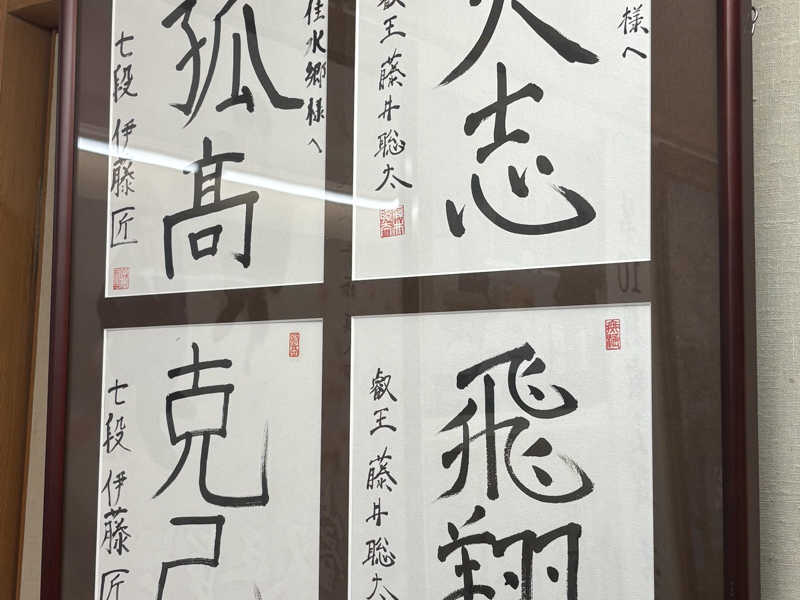 様へ
大志
叡王 藤井聡太
佳水郷様へ
孤高
七段 伊藤匠
飛翔
叡王 藤井聡太
克己
七段 伊藤匠